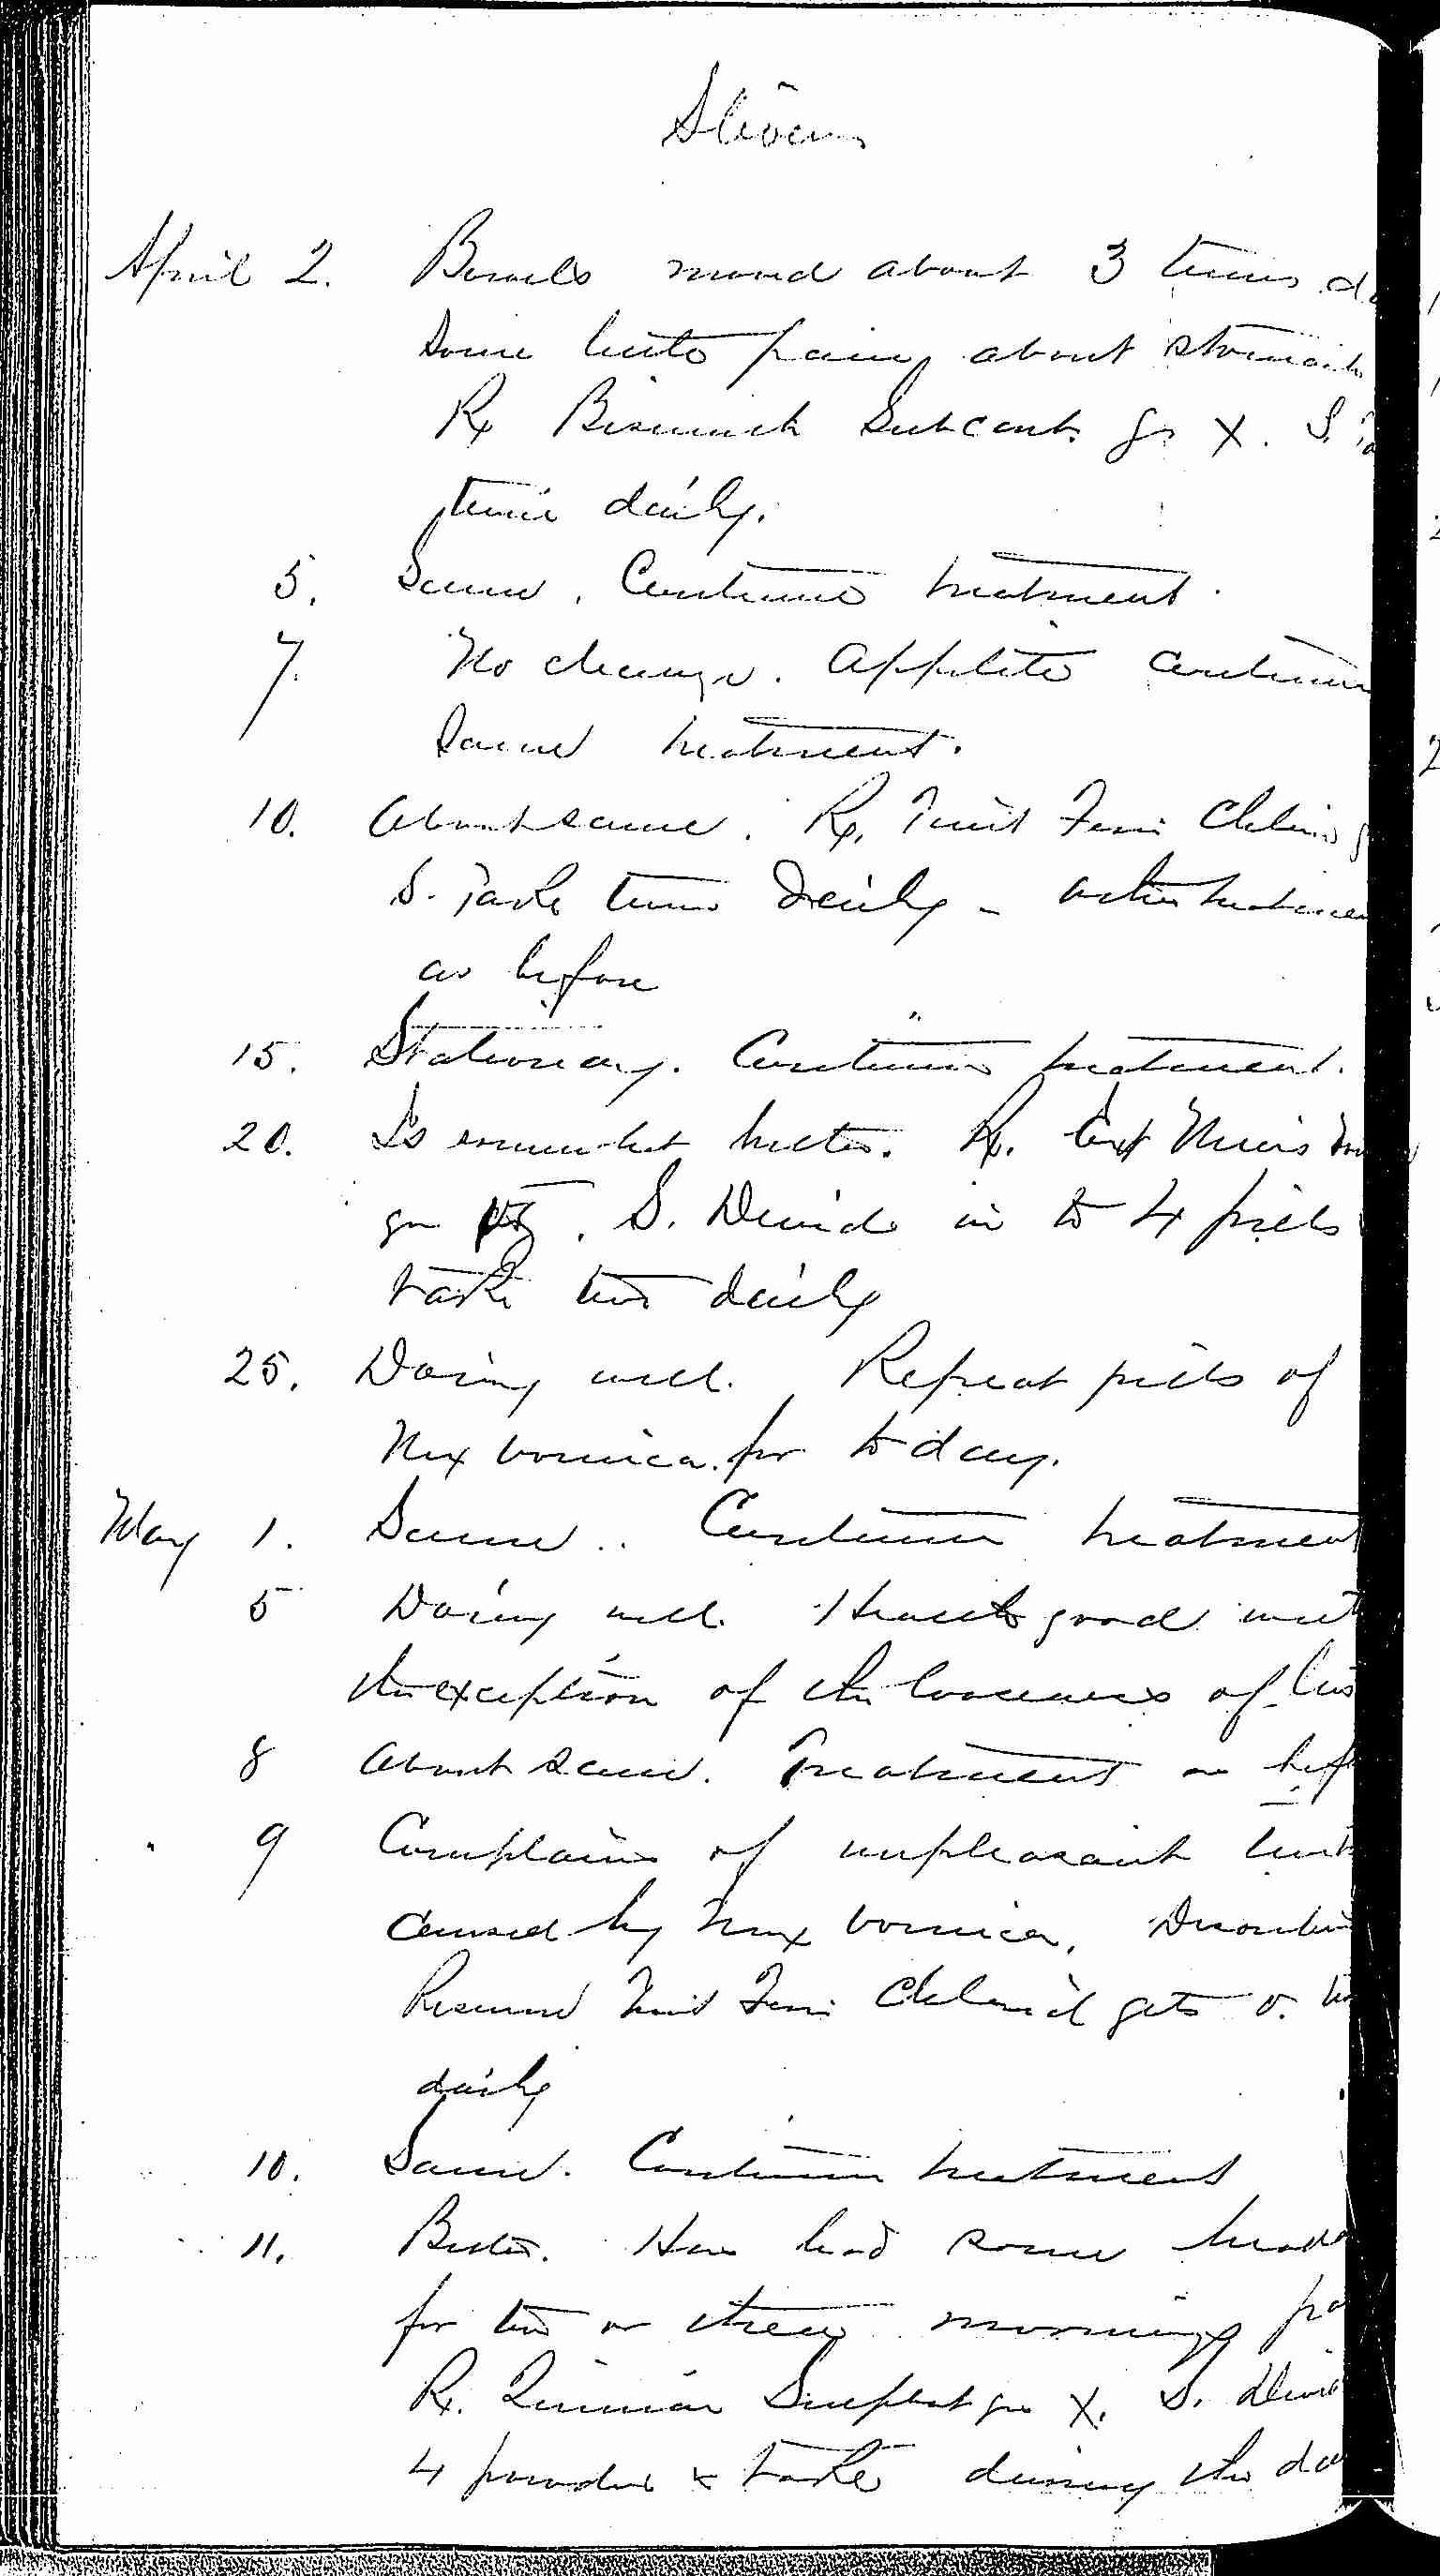 Stivers
April 2. Bowels moved about 3 times
Some little pain about stomach
Rx Bismuth Subcarb. gr X. S.
time daily.
5. Same. Continue treatment.
7. No change. Appetite
Same treatment.
10. About same. Rx. Tinct Ferri Chlorid
S. Take three daily - other
as before
15. Stationary. Continue treatment.
20. Is somewhat better. Rx. Ext Nucis
gr. S. Divide in to 4 pills
take two daily
25. Doing well. Repeat pills of
Nux vomica. for to day.
May 1. Same. Continue treatment
5 Doing well. Health good
the exception of the looseness of
8 About same. Treatment as
9 Complains of unpleasant
caused by Nux vomica.
Resume Tinct Ferri Chlorid gtts
daily
10. Same. Continue treatment
11. Better. Has had some
for two or three mornings
Rx. Quiniae Sulphat grs X. S.
4 powders & take during the